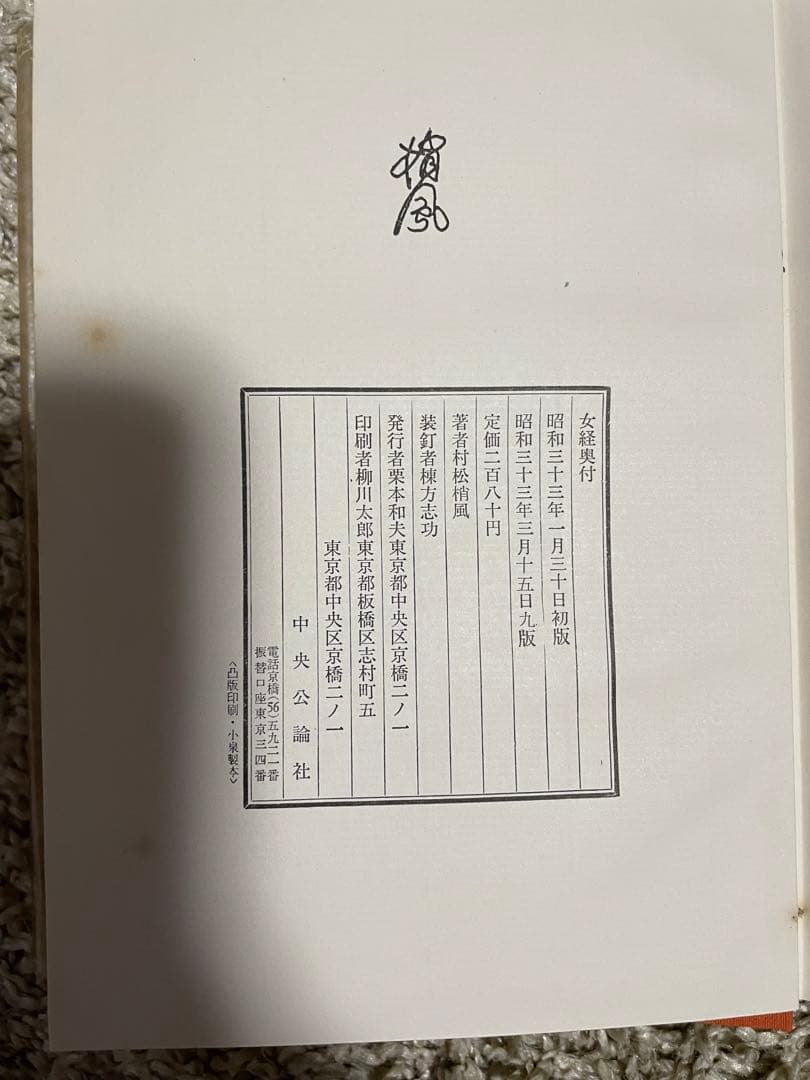 梢風
女経奥付
昭和三十三年一月三十日初版
昭和三十三年三月十五日九版
定価二百八十円
著者村松梢風
装釘者棟方志功
発行者栗本和夫東京都中央区京橋二ノ一
印刷者柳川太郎東京都板橋区志村町五
東京都中央区京橋二ノ一
中央公論社
電話京橋(56)五九二一番
振替口座東京三四番
<凸版印刷・小泉製本>